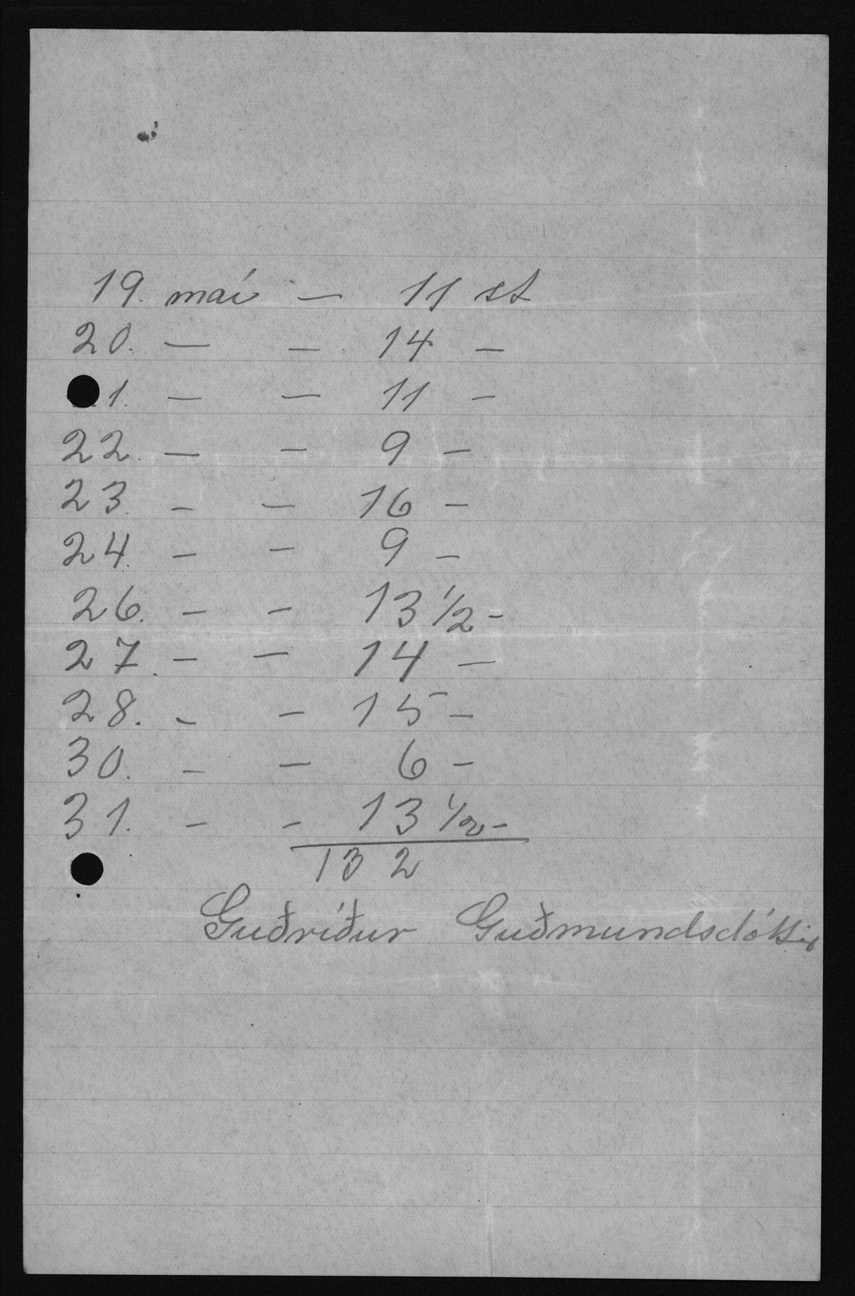 19. maí — 11 st
20. — — 14 —
21. — — 11 —
22. — — 9 —
23. — — 16 —
24. — — 9 —
26. — — 13 1/2 —
27. — — 14 —
28. — — 15 —
30. — — 6 —
31. — — 13 1/2 —
132
Guðríður Guðmundsdóttir